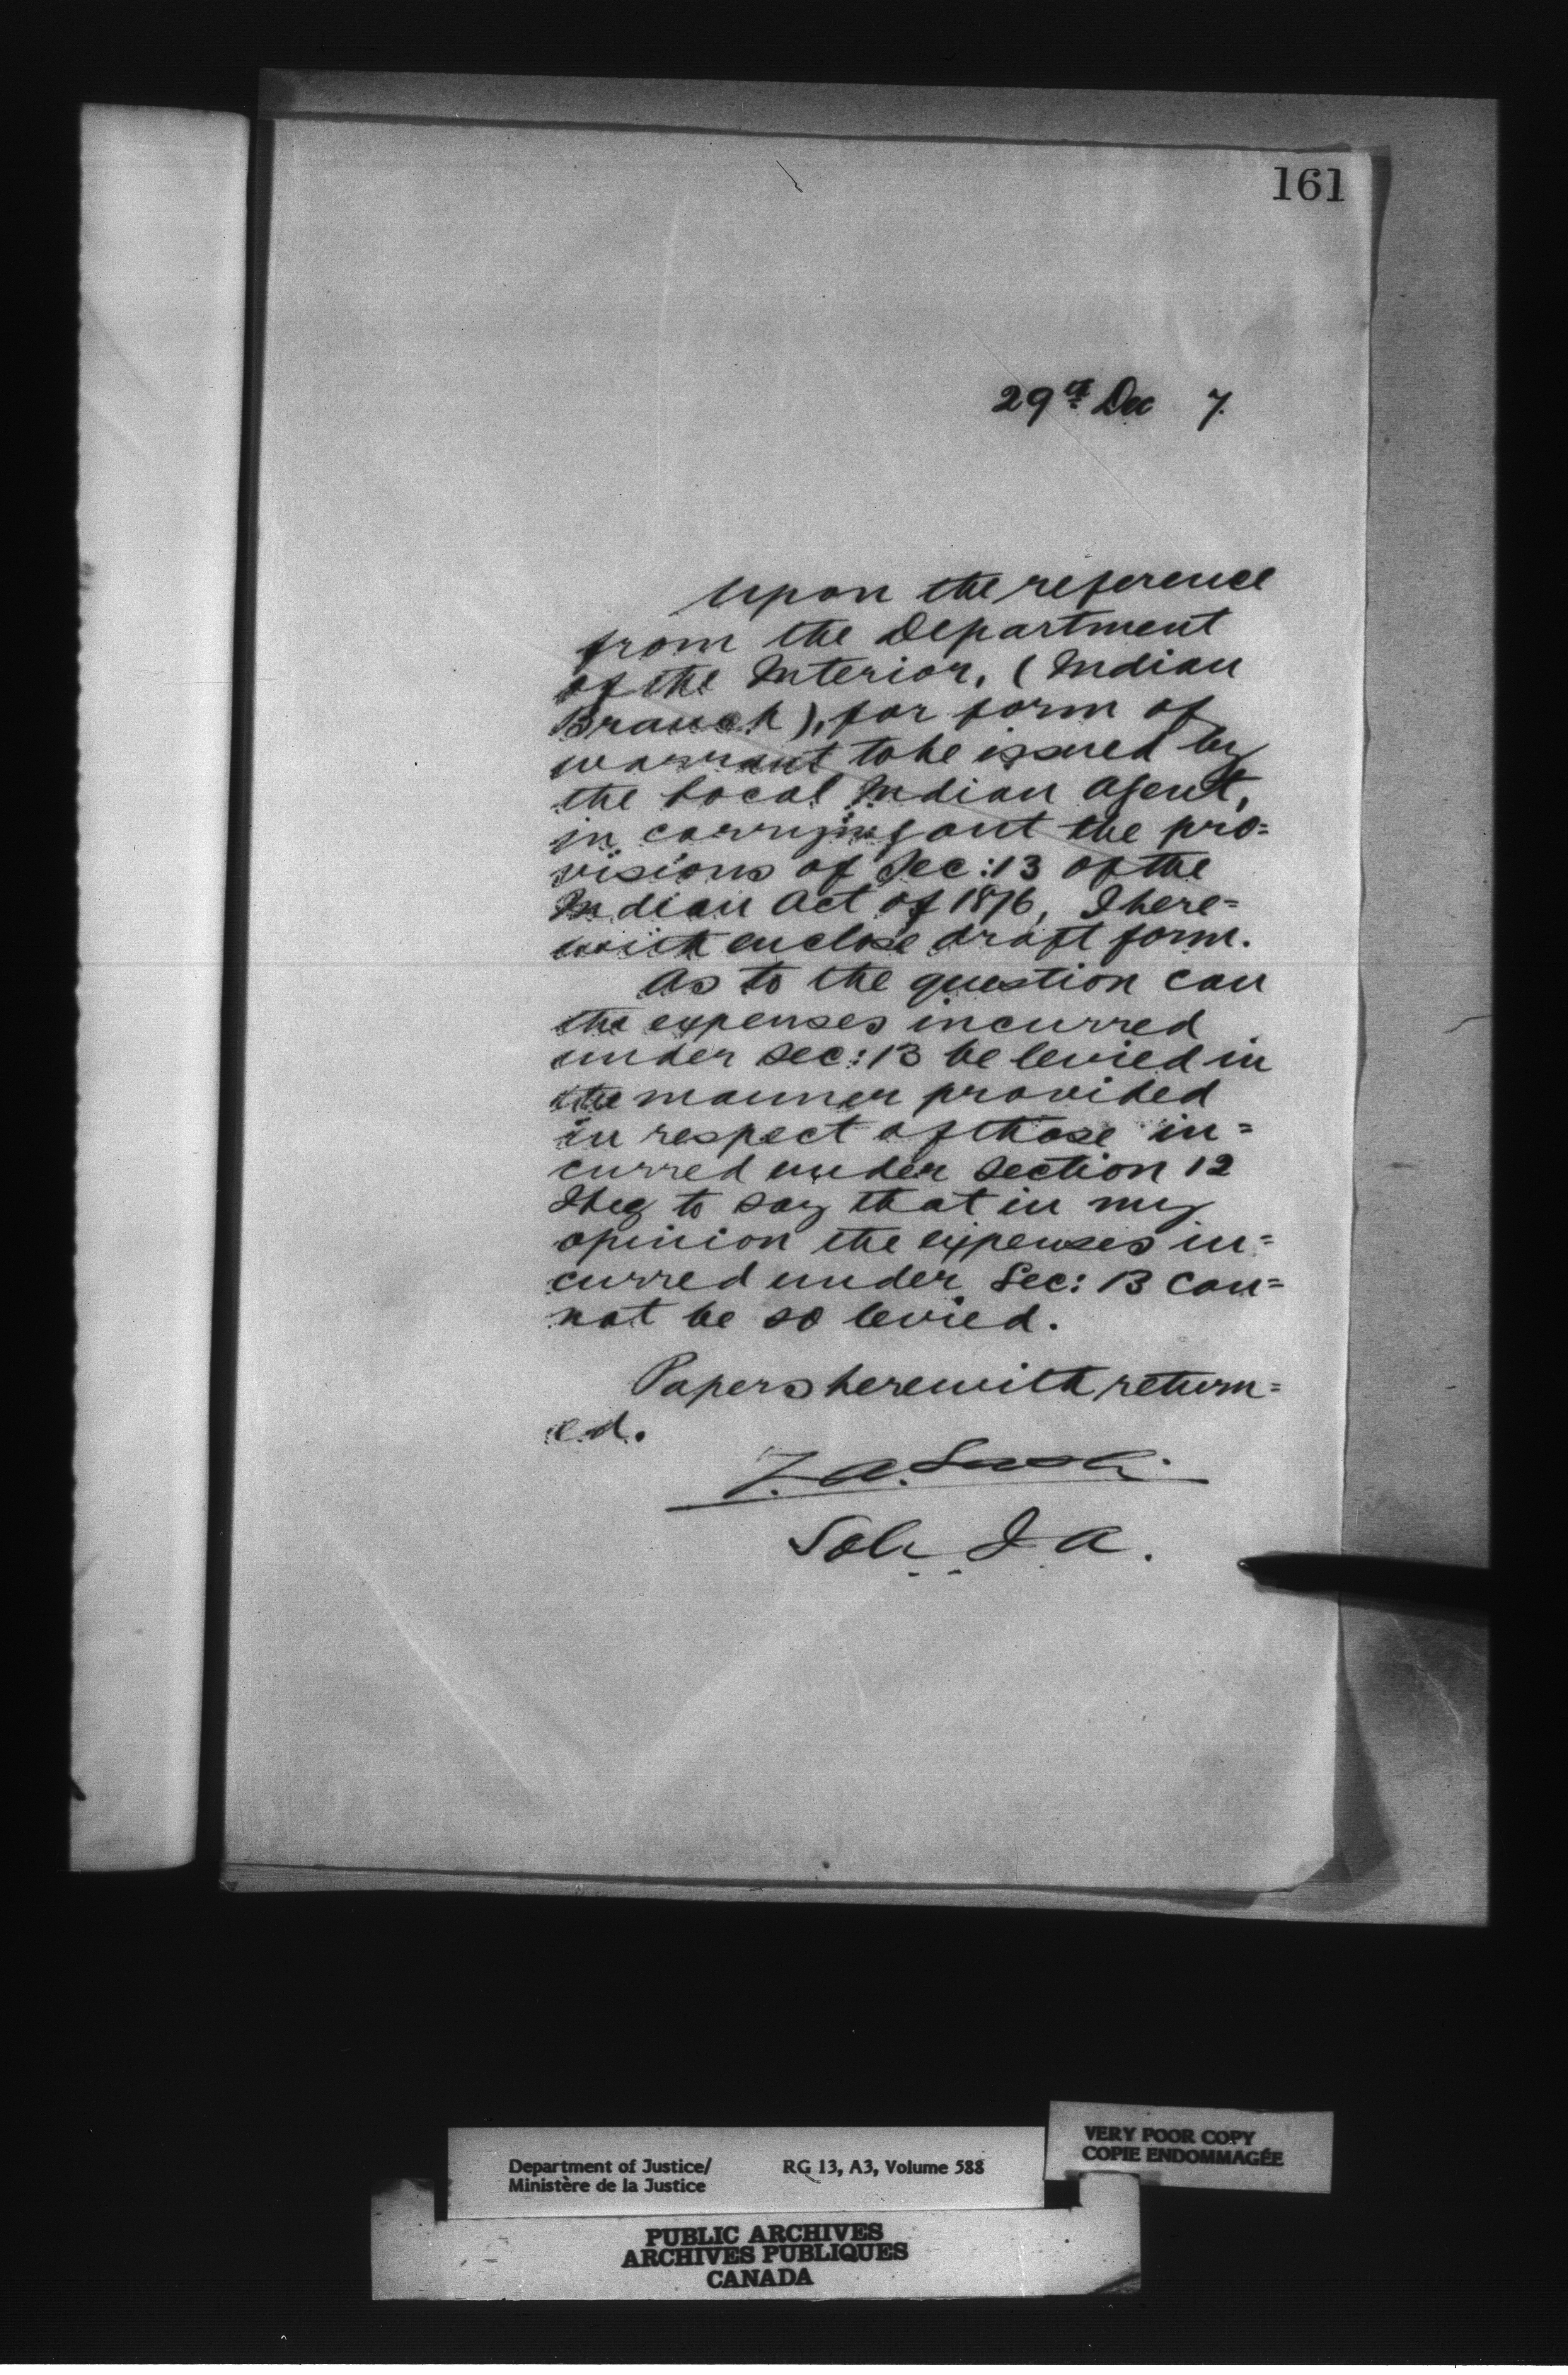 161
29th Dec 7.
Upon the reference
from the Department
of the Interior, (Indian
Branch), for form of
warrant to be issued by
the Local Indian Agent,
in carrying out the pro=
visions of Sec: 13 of the
Indian Act of 1876, I here=
with enclose draft form.
As to the question can
the expenses incurred
under Sec: 13 be levied in
the manner provided
in respect of those in=
curred under Section 12
I beg to say that in my
opinion the expenses in=
curred under Sec: 13 can=
not be so levied.
Papers herewith return=
ed.
Z. A. Lash
Sol. I A.
VERY POOR COPY
COPIE ENDOMMAGÉE
Department of Justice/ RG 13, A3, Volume 588
Ministère de la Justice
PUBLIC ARCHIVES
ARCHIVES PUBLIQUES
CANADA